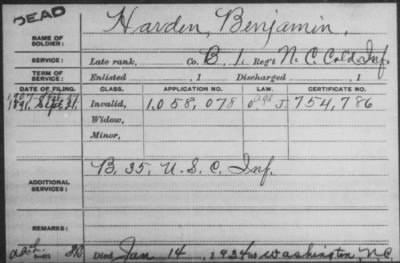 DEAD
Harden, Benjamin,
NAME OF SOLDIER:
SERVICE: Late rank, Co. B, 1, Reg't N. C. Col'd Inf.
TERM OF SERVICE: Enlisted , 1 Discharged , 1
DATE OF FILING. CLASS. APPLICATION NO. LAW. CERTIFICATE NO.
1891, Sept. 21, Invalid, 1,058,078 J. 754,786
Widow,
Minor,
ADDITIONAL SERVICES: B. 35, U. S. C. Inf.
REMARKS:
Died Jan 14, 1924 at Washington, N.C.